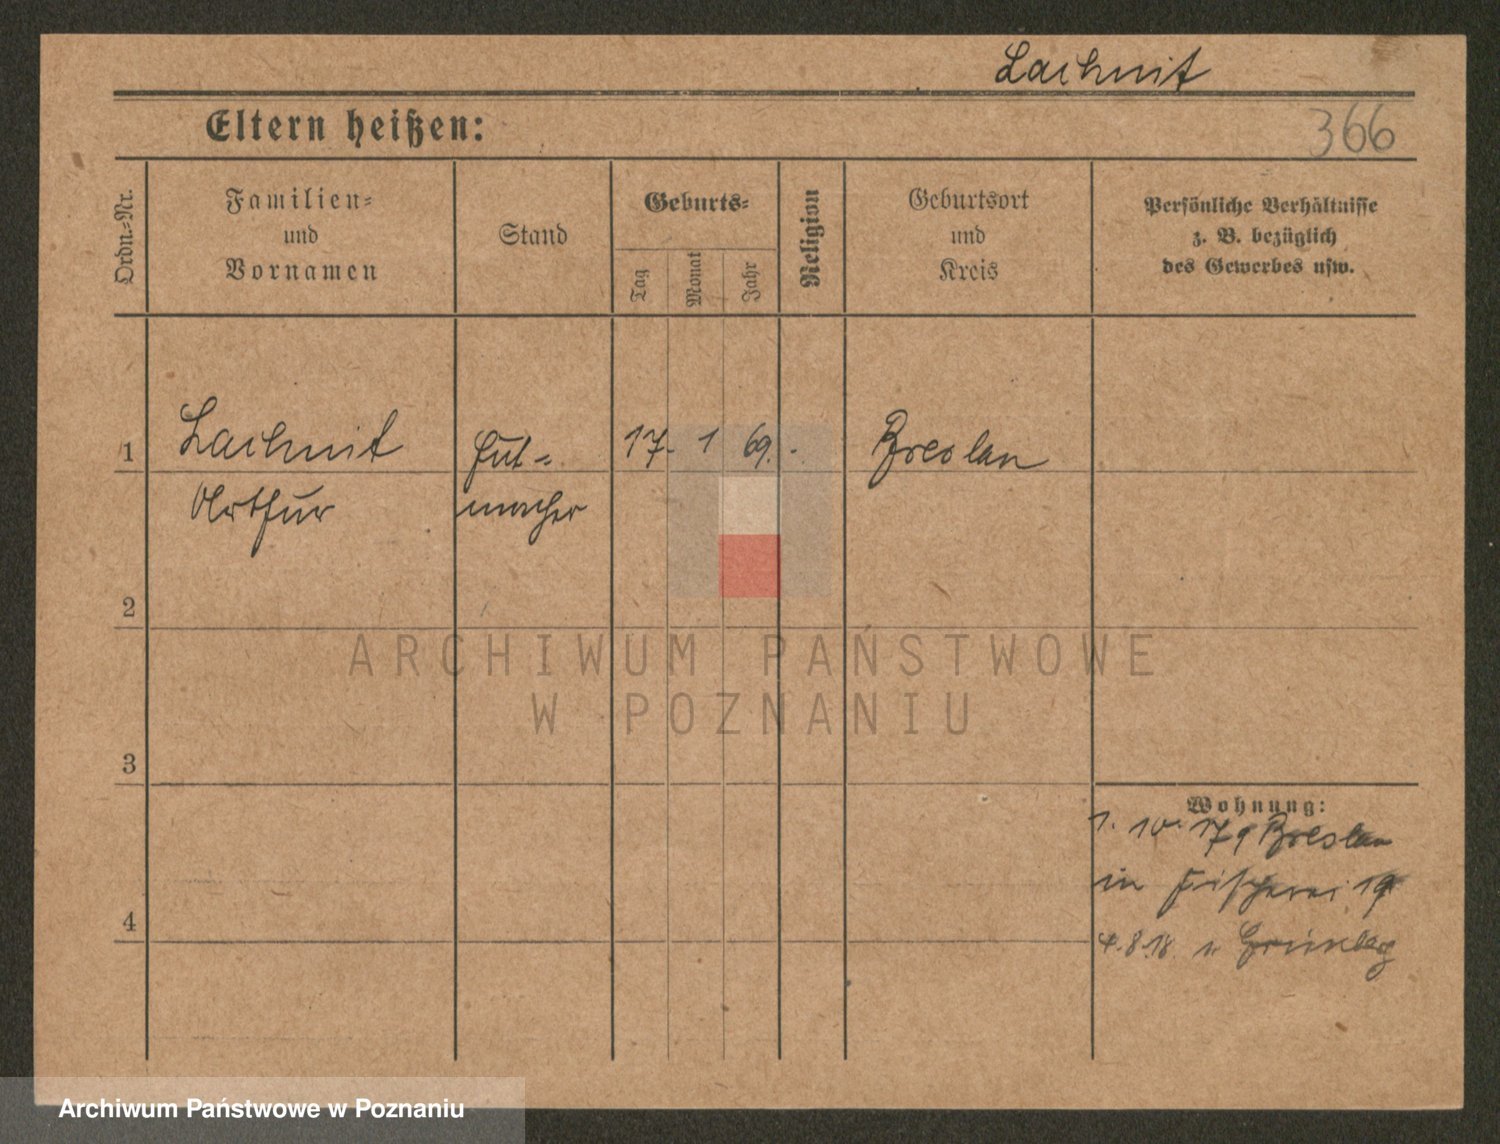 Lachnit
Eltern heißen:
366
Ordn.-Nr.
Familien-
und
Vornamen
Stand
Geburts-
Tag
Monat
Jahr
Religion
Geburtsort
und
Kreis
Persönliche Verhältnisse
z. B. bezüglich
des Gewerbes usw.
1
Lachnit
Hut-
17. 1 69. -
Breslau
Arthur
macher
2
ARCHIWUM PAŃSTWOWE
W POZNANIU
3
Wohnung:
1. 10. 17 Breslau
in Fischerei 19
4
4.8.18. n Grünberg
Archiwum Państwowe w Poznaniu